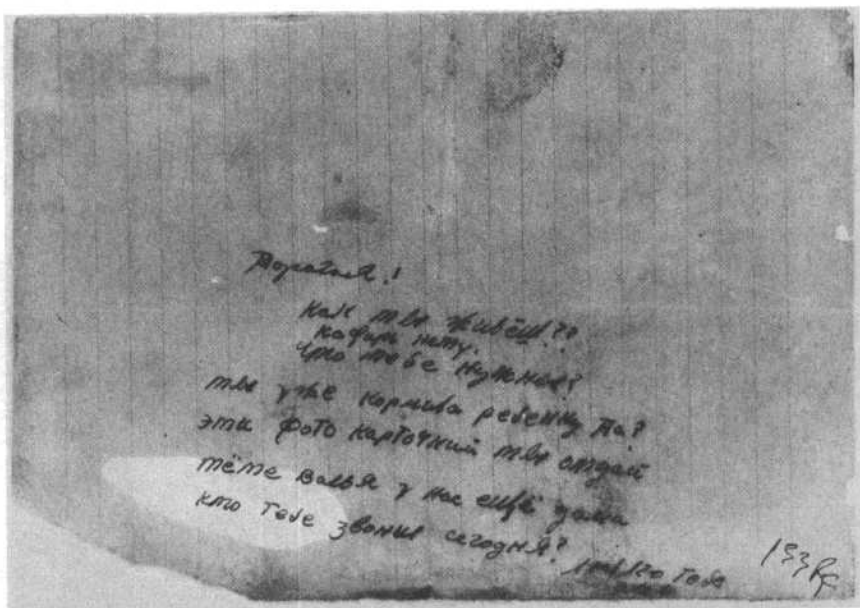 Дорогая!
Как ты живёш??
кафар нету.
что тебе нужноя?
ты уже кормила ребенку да?
эти фото карточкий ты отдай
тёте Валья у нас ещё дома
кто тебе звонил сегодня?
тебе